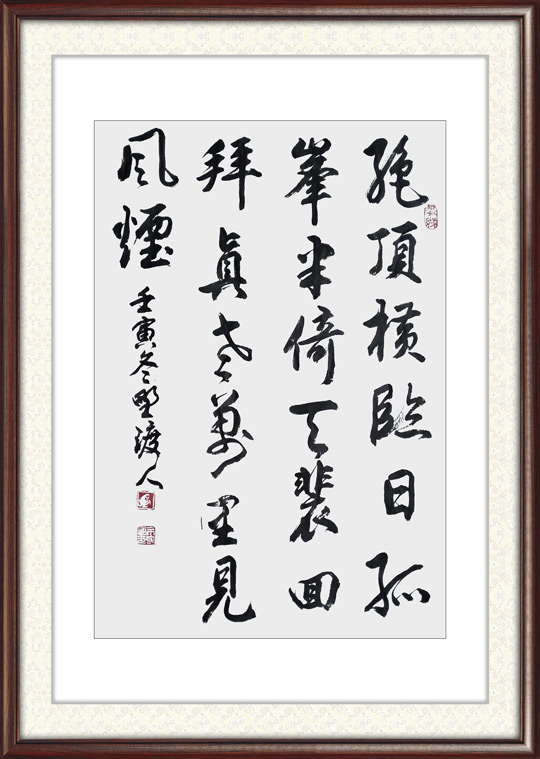 絕頂橫臨日孤
峯半倚天裴回
拜眞老萬里見
風煙
壬寅冬野渡人